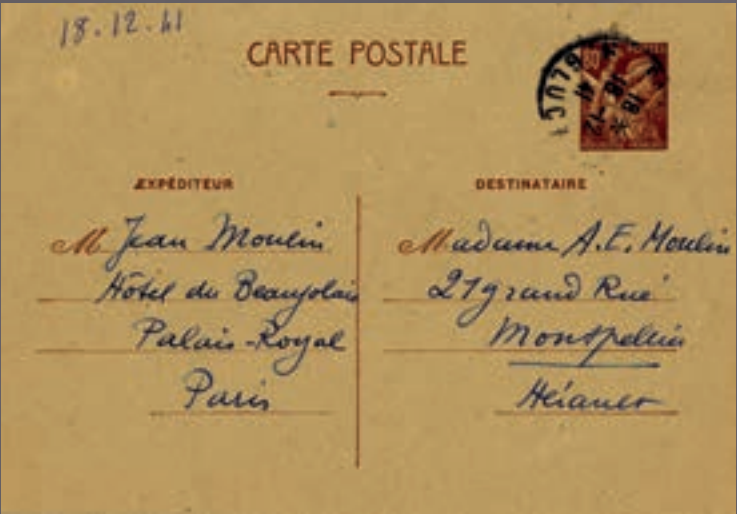 18.12.41
CARTE POSTALE
80
18
18 * 12
41
EXPÉDITEUR
M Jean Moulin
Hôtel du Beaujolais
Palais-Royal
Paris
DESTINATAIRE
Madame A.E. Moulin
21 grand Rue
Montpellier
Hérault